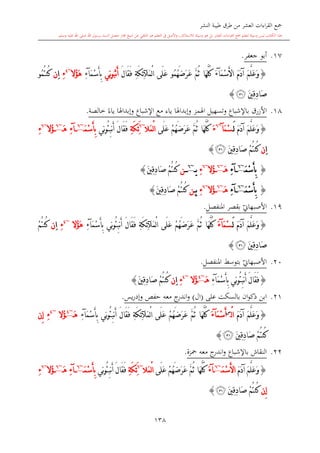 جمع القراءات العشر من طرق طيبة النشر
١٧. أبو جعفر.
﴿ وَعَلَّمَ ءَادَمَ ٱلْأَسْمَآءَ كُلَّهَا ثُمَّ عَرَضَهُمُو عَلَى ٱلْمَلَٰٓئِكَةِ فَقَالَ أَنۢبِـُٔونِى بِأَسْمَآءِ هَٰٓؤُلَآءِ إِن كُنتُمُو
صَٰدِقِينَ ﴿٣١﴾ ﴾
١٨. الأزرق بالإشباع وتسهيل الهمز وإبدالها ياء مع الإشباع وإبدالها ياءً خالصة.
﴿ وَعَلَّمَ ءَادَمَ ٱلَاسْمَآءَ كُلَّهَا ثُمَّ عَرَضَهُمْ عَلَى ٱلْمَلَٰٓئِكَةِ فَقَالَ أَنۢبِـُٔونِى بِأَسْمَآءِ هَٰٓؤُلَآءِ
إِن كُنتُمْ صَٰدِقِينَ ﴿٣١﴾ ﴾
﴿ بِأَسْمَآءِ هَٰٓؤُلَآءِ يـٓن كُنتُمْ صَٰدِقِينَ ﴾
﴿ بِأَسْمَآءِ هَٰٓؤُلَآءِ يِن كُنتُمْ صَٰدِقِينَ ﴾
١٩. الأصبهاني بقصر المنفصل.
﴿ وَعَلَّمَ ءَادَمَ ٱلَاسْمَآءَ كُلَّهَا ثُمَّ عَرَضَهُمْ عَلَى ٱلْمَلَٰٓئِكَةِ فَقَالَ أَنۢبِـُٔونِى بِأَسْمَآءِ هَٰٓؤُلَآءِ إِن كُنتُمْ
صَٰدِقِينَ ﴿٣١﴾ ﴾
٢٠. الأصبهاني بتوسط المنفصل.
﴿ فَقَالَ أَنۢبِـُٔونِى بِأَسْمَآءِ هَٰٓؤُلَآءِ إِن كُنتُمْ صَٰدِقِينَ ﴾
٢١. ابن ذكوان بالسكت على (ال) واندرج معه حفص وإدريس.
﴿ وَعَلَّمَ ءَادَمَ ٱلْأَسْمَآءَ كُلَّهَا ثُمَّ عَرَضَهُمْ عَلَى ٱلْمَلَٰٓئِكَةِ فَقَالَ أَنۢبِـُٔونِى بِأَسْمَآءِ هَٰٓؤُلَآءِ إِن
كُنتُمْ صَٰدِقِينَ ﴿٣١﴾ ﴾
٢٢. النقاش بالإشباع واندرج معه حمزة.
﴿ وَعَلَّمَ ءَادَمَ ٱلْأَسْمَآءَ كُلَّهَا ثُمَّ عَرَضَهُمْ عَلَى ٱلْمَلَٰٓئِكَةِ فَقَالَ أَنۢبِـُٔونِى بِأَسْمَآءِ هَٰٓؤُلَآءِ
إِن كُنتُمْ صَٰدِقِينَ ﴿٣١﴾ ﴾
١٣٨